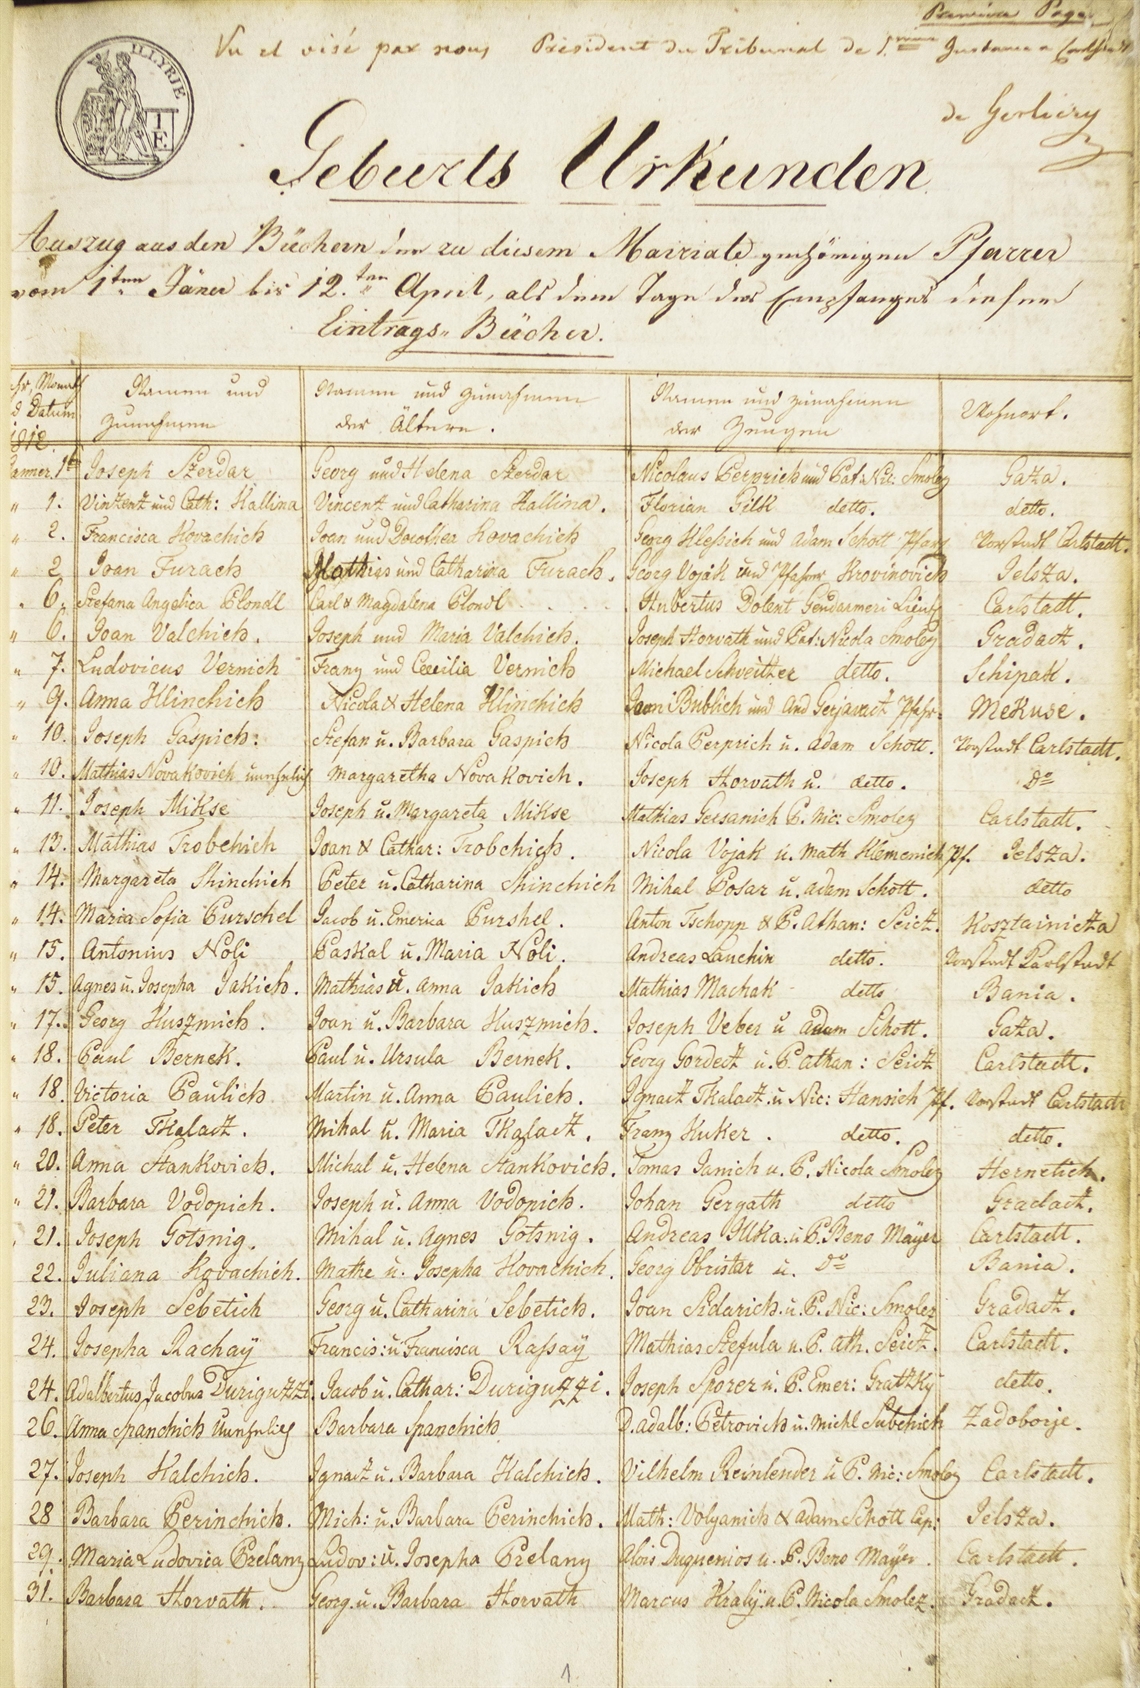 Première Page
Vu et visé par nous Président du Tribunal de 1ere Instance a Carlstadt
ILLYRIE
T
F.
Geburts Urkunden
Auszug aus den Büchern der zu diesem Mairiate gehörigen Pfarrer
vom 1ten Jäner bis 12.ten April, als dem Tage des Empfanges dieser
Eintrags-Bücher.
Jahr, Monath
d Datum
1812.
Namen und
Zunahmen
Namen und Zunahmen
der Ältern.
Namen und Zunahmen
der Zeugen
Wohnort.
Jänner. 1t Joseph Szerdar Georg und Helena Szerdar Nicolaus Perprich und Pat: Nic: Smoley Gaza.
" 1. Vinzenz und Cath: Hallina Vincent und Catharina Hallina. Florian Filk detto. detto.
" 2. Francisca Kovachich Joan und Dorothea Kovachich Georg Klessich und Adam Schott Pfarr Vorstadt Carlstadt.
" 2 Joan Furach Mathias und Catharina Furach. Georg Vojak und Pfarr Krovinovich Jelsza.
" 6. Stefana Angelica Plondl Carl & Magdalena Plondl Hubertus Dolent Gendarmeri Lieut Carlstatt.
" 6. Joan Valchich. Joseph und Maria Valchich. Joseph Horvath und Pat: Nicola Smoley Gradacz.
" 7. Ludovicus Vernich Franz und Cecilia Vernich Michael Schweitzer detto. Schipak.
" 9. Anna Hlinchich Nicola & Helena Hlinchich Joan Bublich und And Gerjavact Pfhr. Mekuse.
" 10. Joseph Gaspich. Stefan u. Barbara Gaspich Nicola Perprich u. Adam Schott. Vorstadt Carlstadt.
" 10. Mathias Novakovich unehelig Margaretha Novakovich. Joseph Horvath u. detto. Do
" 11. Joseph Mikse Joseph u. Margareta Mikse Mathias Gersanich P. Nic: Smoley Carlstadt.
" 13. Mathias Trobchich Joan & Cathar: Trobchich. Nicola Vojak u. Math. Klemenich Pf. Jelsza.
" 14. Margareta Shinchich Peter u. Catharina Shinchich Mihal Posar u. Adam Schott. detto
" 14. Maria Sofia Purschel Jacob u. Emerica Purshel. Anton Tschopp & P. Athan: Seicz. Kosztainicza
" 15. Antonius Noli Paskal u. Maria Noli. Andreas Lauchin detto. Vorstadt Carlstadt
" 15. Agnes u. Josepha Jakich. Mathias u. Anna Jakich Mathias Machak detto Bania.
" 17. Georg Huszmich. Joan u. Barbara Huszmich. Joseph Veber u Adam Schott. Gaza.
" 18. Paul Bernek. Paul u. Ursula Bernek. Georg Gordecz u. P. Athan: Seicz Carlstadt.
" 18. Victoria Paulich Martin u. Anna Paulich. Ignacz Tkalacz u. Nic: Hansich Pf. Vorstadt Carlstadt
" 18. Peter Tkalacz. Mihal u. Maria Tkalacz. Franz Huker. detto. detto.
" 20. Anna Stankovich. Michal u. Helena Stankovich. Tomas Janich u. P. Nicola Smoley Hernetich.
" 21. Barbara Vodopich. Joseph u. Anna Vodopich. Johan Gergath detto Gradacz.
" 21. Joseph Gotsnig. Mihal u. Agnes Gotsnig. Andreas Illka. u. P. Beno Mäyer Carlstadt.
22. Juliana Kovachich. Mathe u. Josepha Kovachich. Georg Obristar u. Do Bania.
23. Joseph Sebetich Georg u. Catharina Sebetich. Joan Sidarich. u. P. Nic: Smoley Gradacz.
24. Josepha Rachaÿ Francis: u Francisca Rassaÿ Mathias Stefula u. P. Ath. Seicz. Carlstadt.
24. Adalbertus Jacobus Duriguzzi Jacob u. Cathar: Duriguzzi. Joseph Sporer u. P. Emer: Gratzky detto.
26. Anna Spanchich unehelig Barbara Spanchich D. Adalb: Petrovich u. Michl Subchich Zadoborje.
27. Joseph Halchich. Ignacz u. Barbara Halchich. Vilhelm Reinlender u P. Nic: Smoley Carlstatt.
28 Barbara Perinchich. Mich: u. Barbara Perinchich. Math: Volganich & Adam Schott Cap: Jelsza.
29. Maria Ludovica Prelany Ludov: u. Josepha Prelany Alois Duguenios u. P. Beno Mäyer. Carlstadt.
31. Barbara Horvath. Georg. u. Barbara Horvath Marcus Kralÿ. u. P. Nicola Smoley. Gradacz.
1